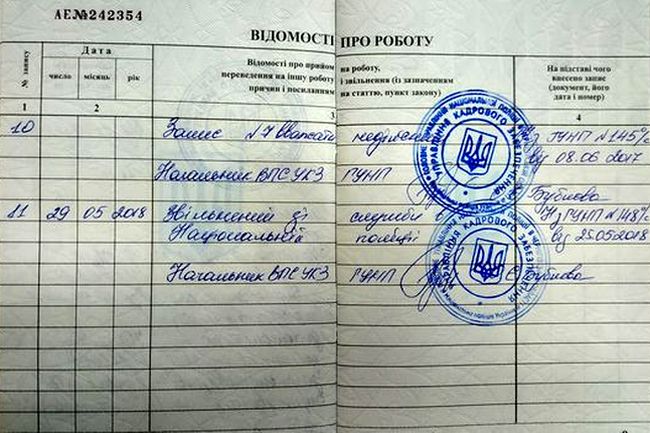 АЕ№242354
ВІДОМОСТІ ПРО РОБОТУ
№ запису
Дата
число місяць рік
Відомості про прийом на роботу,
переведення на іншу роботу і звільнення (із зазначенням
причин і посиланням на статтю, пункт закону)
На підставі чого
внесено запис
(документ, його
дата і номер)
1 2 3 4
10 Запис №7 вважати ГУНП №145
від 08.06 2017
Начальник ВПС УКЗ ГУНП Бубнова
11 29 05 2018 Звільнений зі служби в ГУНП №148
Національній поліції від 25.05.2018
Начальник ВПС УКЗ ГУНП Бубнова
УПРАВЛІННЯ КАДРОВОГО ЗАБЕЗПЕЧЕННЯ
УПРАВЛІННЯ КАДРОВОГО ЗАБЕЗПЕЧЕННЯ